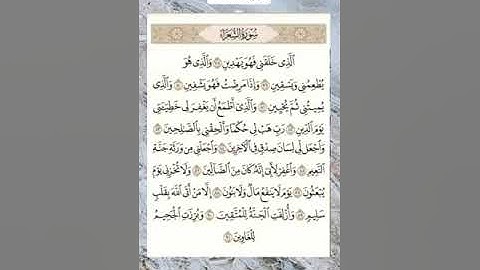 سُورَةُ الشُّعَرَاء
ٱلَّذِى خَلَقَنِى فَهُوَ يَهْدِينِ ٧٨ وَٱلَّذِى هُوَ
يُطْعِمُنِى وَيَسْقِينِ ٧٩ وَإِذَا مَرِضْتُ فَهُوَ يَشْفِينِ ٨٠ وَٱلَّذِى
يُمِيتُنِى ثُمَّ يُحْيِينِ ٨١ وَٱلَّذِىٓ أَطْمَعُ أَن يَغْفِرَ لِى خَطِيٓـَٔتِى
يَوْمَ ٱلدِّينِ ٨٢ رَبِّ هَبْ لِى حُكْمًا وَأَلْحِقْنِى بِٱلصَّـٰلِحِينَ ٨٣
وَٱجْعَل لِّى لِسَانَ صِدْقٍ فِى ٱلْـَٔاخِرِينَ ٨٤ وَٱجْعَلْنِى مِن وَرَثَةِ جَنَّةِ
ٱلنَّعِيمِ ٨٥ وَٱغْفِرْ لِأَبِىٓ إِنَّهُۥ كَانَ مِنَ ٱلضَّآلِّينَ ٨٦ وَلَا تُخْزِنِى يَوْمَ
يُبْعَثُونَ ٨٧ يَوْمَ لَا يَنفَعُ مَالٌ وَلَا بَنُونَ ٨٨ إِلَّا مَنْ أَتَى ٱللَّهَ بِقَلْبٍ
سَلِيمٍ ٨٩ وَأُزْلِفَتِ ٱلْجَنَّةُ لِلْمُتَّقِينَ ٩٠ وَبُرِّزَتِ ٱلْجَحِيمُ
لِلْغَاوِينَ ٩١